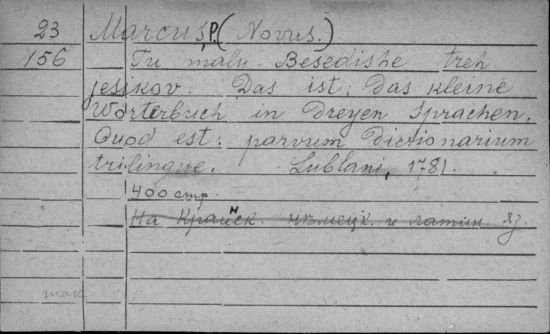 23 Marcus, P. (Novus.)
156 Tu malu Besedishe treh
jesikov. Das ist: Das kleine
Wörterbuch in Dreyen Sprachen.
Quod est: parvum Dictionarium
trilingue. Lublani, 1781.
400 стр.
На Крайнск. нѣмецк. и латин. яз.